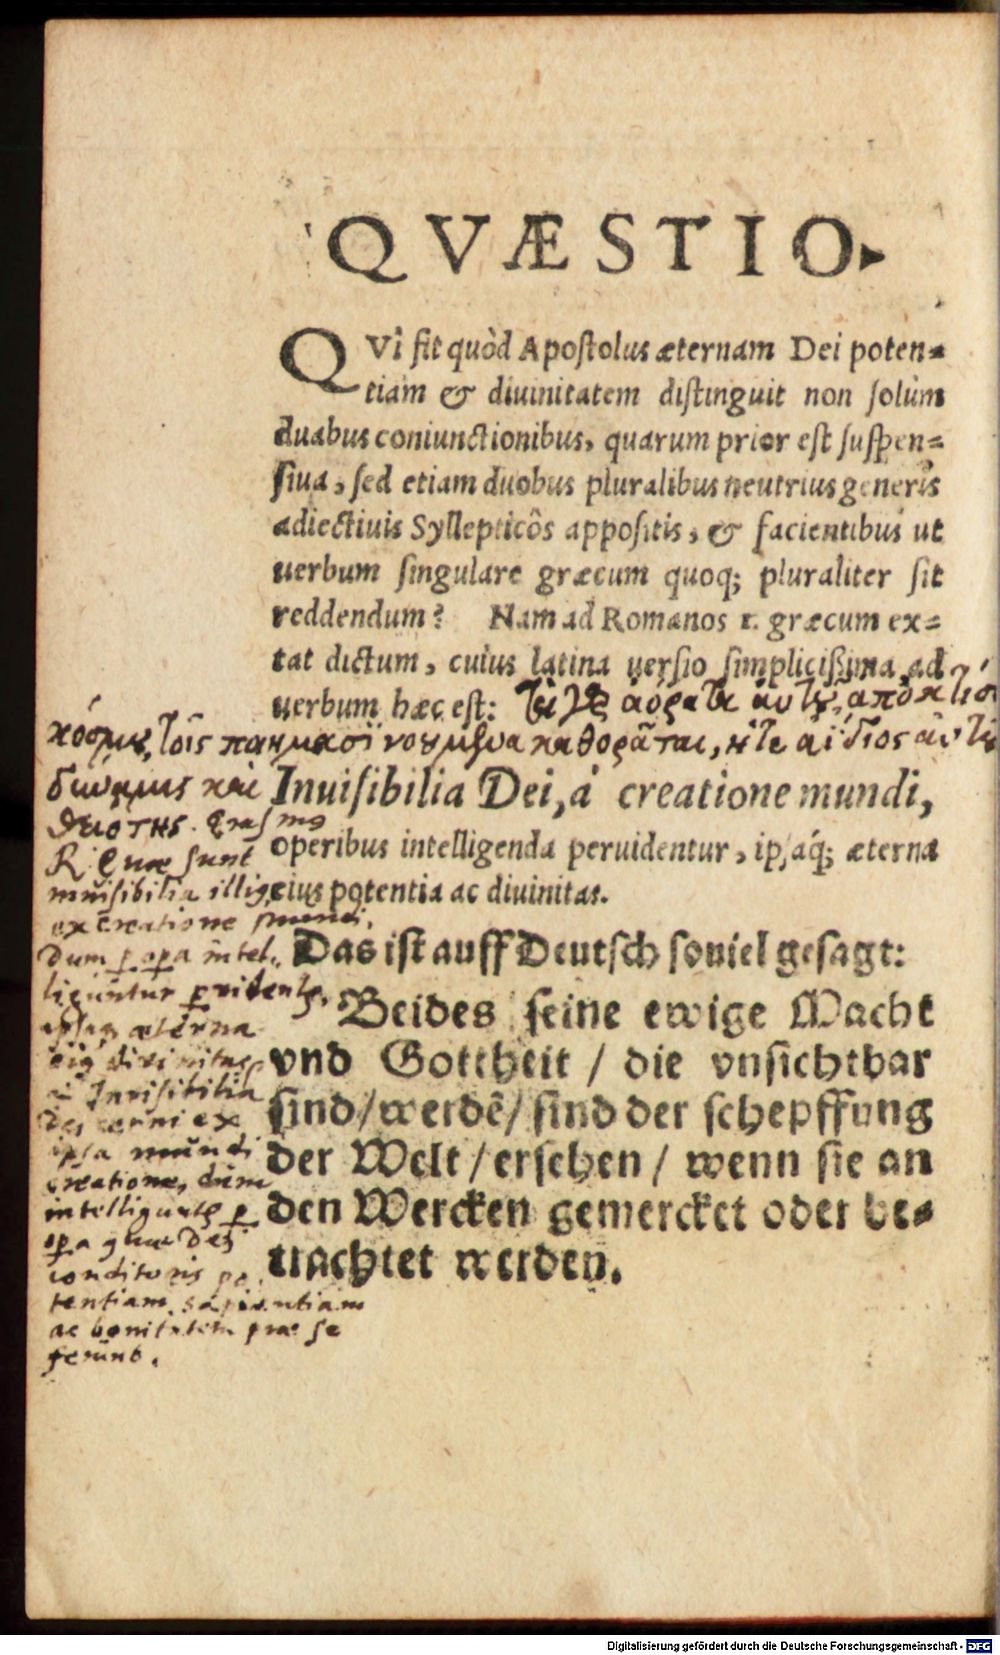 QVÆSTIO.
QVî fit quòd Apostolus æternam Dei poten=
tiam & diuinitatem distinguit non solùm
duabus coniunctionibus, quarum prior est suspen=
siua, sed etiam duobus pluralibus neutrius generis
adiectiuis Syllepticôs appositis, & facientibus ut
uerbum singulare græcum quoq; pluraliter sit
reddendum? Nam ad Romanos 1. græcum ex=
tat dictum, cuius latina uersio simplicißima ad
uerbum hæc est: τὰ γὰρ ἀόρατα αὐτοῦ, ἀπὸ κτίσ
κόσμου, τοῖς ποιήμασι νοούμενα καθορᾶται, ἥτε ἀΐδιος αὐτοῦ
δύναμις καὶ
θειότης. Erasmo
Inuisibilia Dei, à creatione mundi,
operibus intelligenda peruidentur, ipsaq́; æterna
eius potentia ac diuinitas.
R. Quæ sunt
inuisibilia illiꝰ,
ex creatione mundi,
dum ꝑ oꝑa intel-
liguntur ꝑuidentꝛ,
ipsaq; æterna
eiꝰ diuinitas
Inuisibilia
Dei cerni ex
ipsa mundi
creatione, dum
intelliguntꝛ ꝑ
oꝑa quæ Dei
conditoris po
tentiam sapientiam
ac bonitatem præ se
ferunt.
Das ist auff Deutsch souiel gesagt:
Beides seine ewige Macht
vnd Gottheit / die vnsichtbar
sind / werdē / sind der schepffung
der Welt / ersehen / wenn sie an
den Wercken gemercket oder be=
trachtet werden.
Digitalisierung gefördert durch die Deutsche Forschungsgemeinschaft - DFG